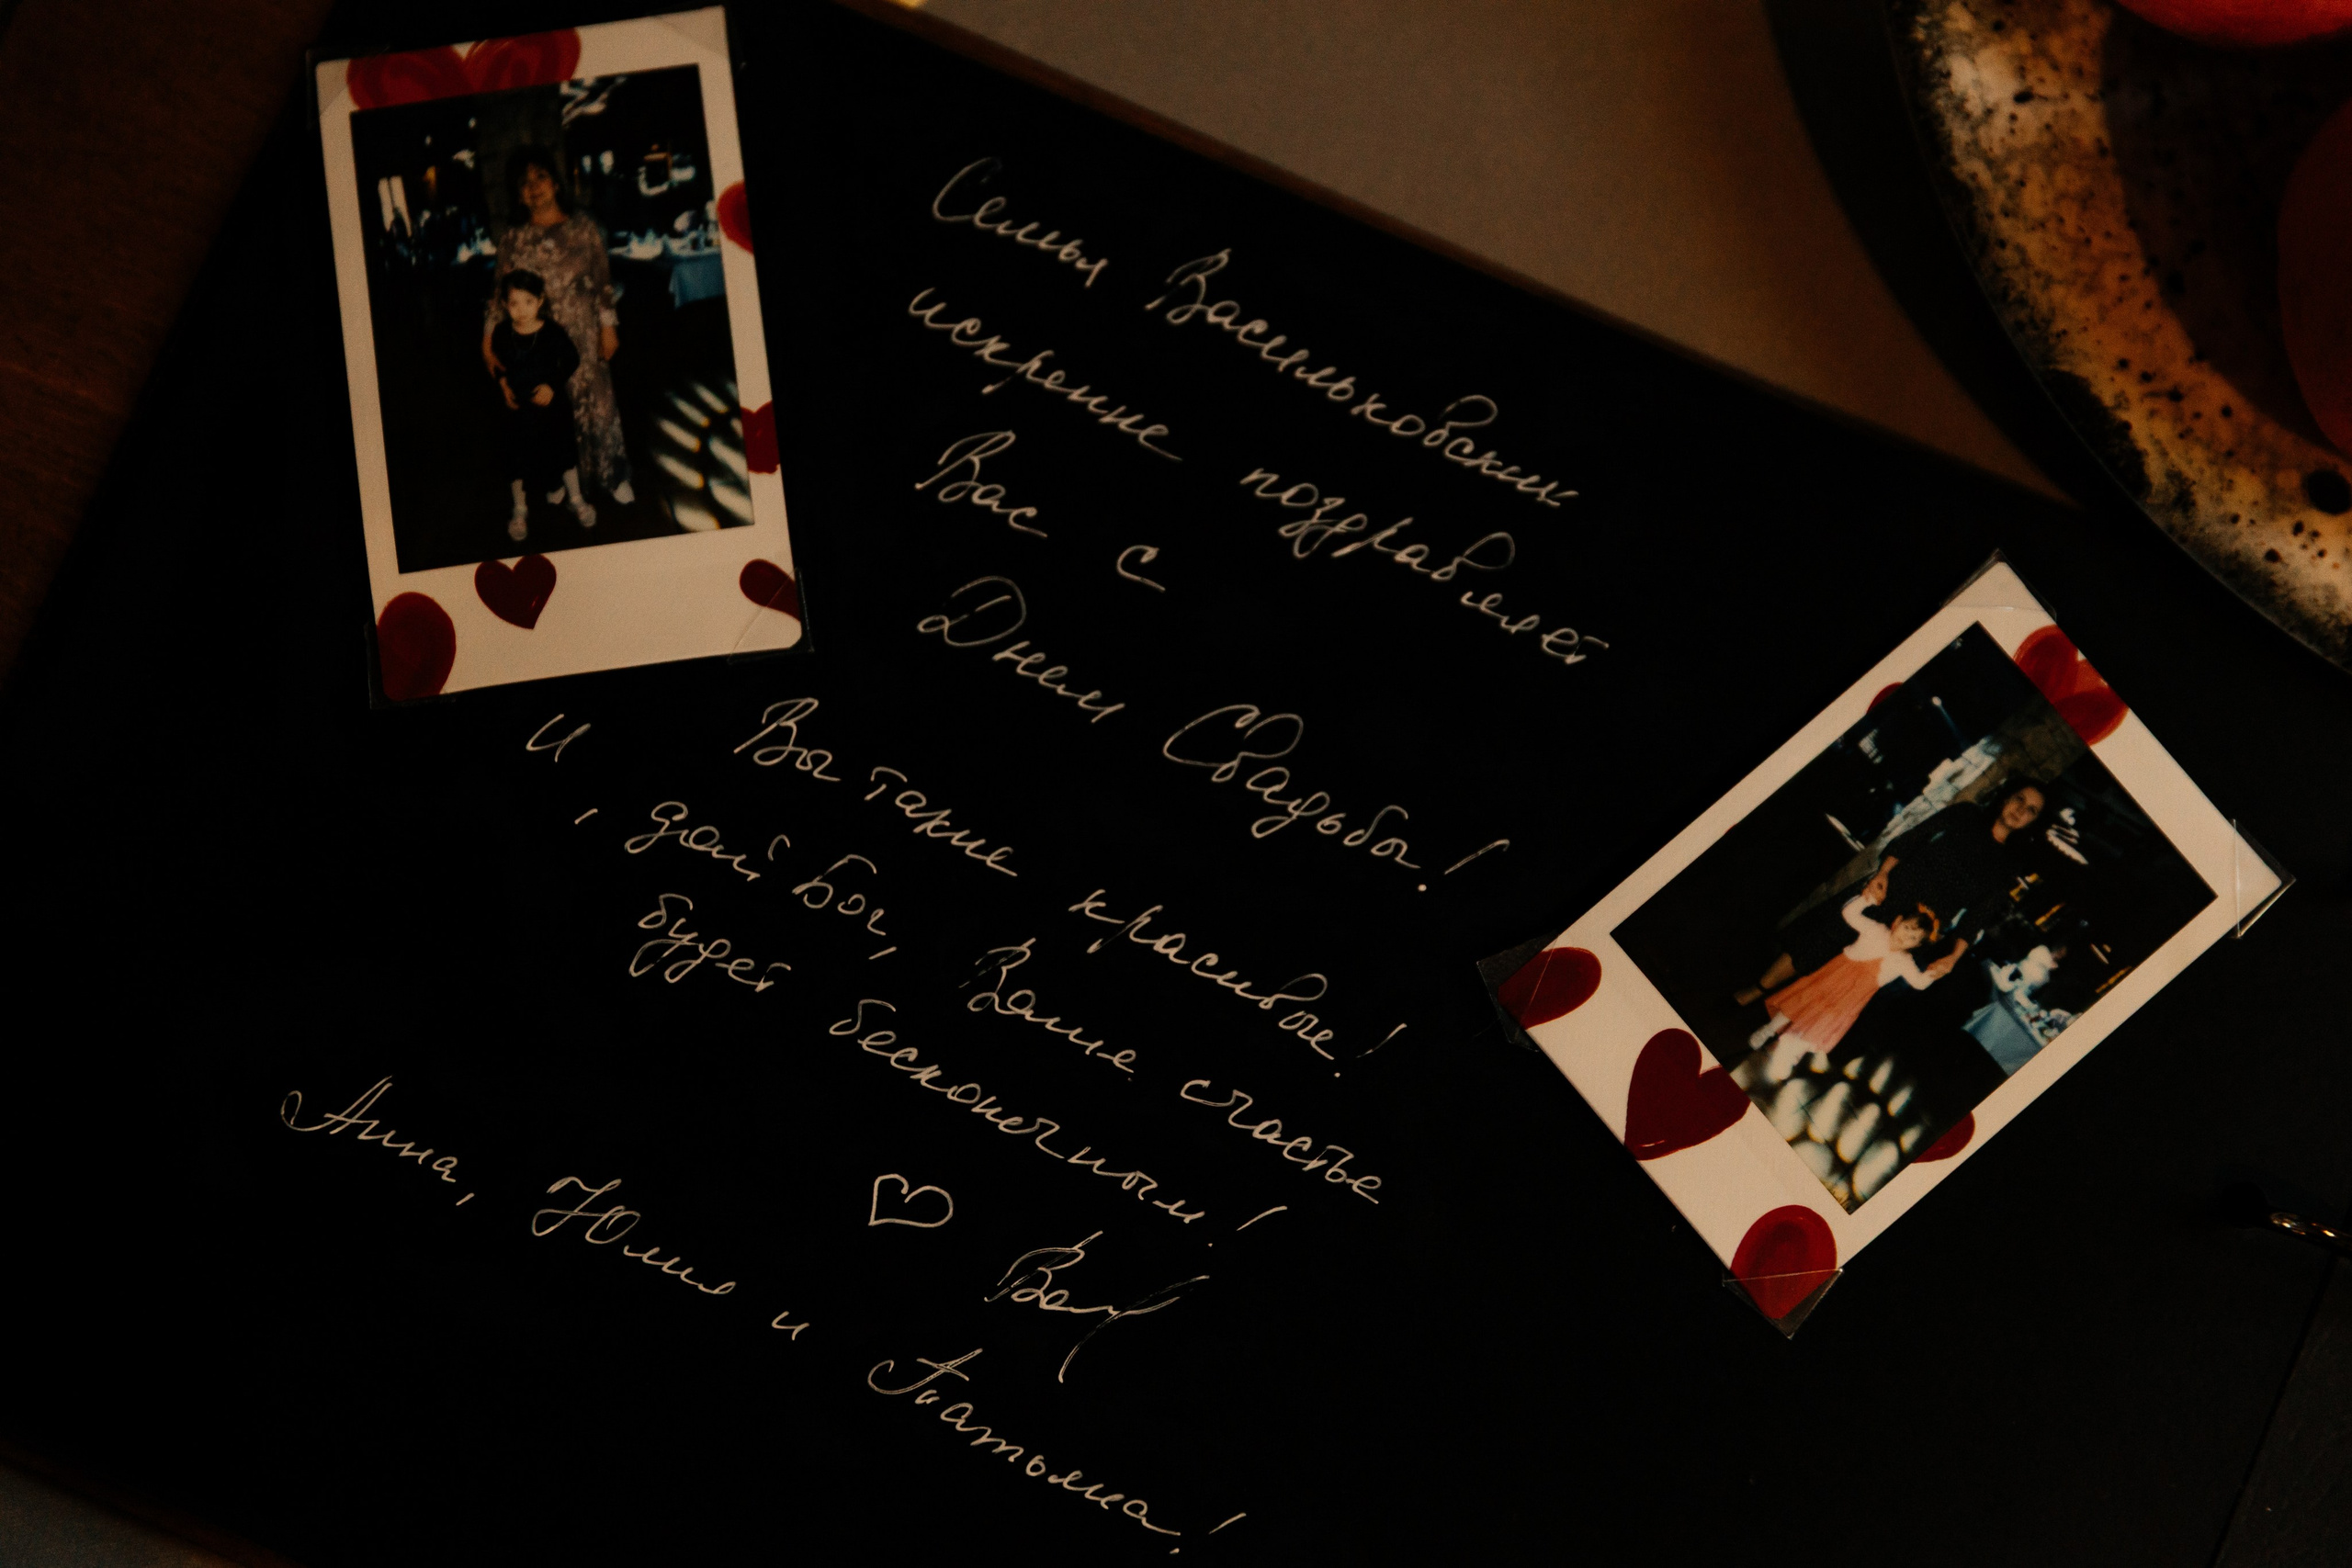 Семья Васильковских
искренне поздравляет
Вас с
Днем Свадьбы!
Вы такие красивые!
И, дай Бог, Ваше счастье
будет бесконечным!
♡ Вам
Анна, Юлия и Татьяна!